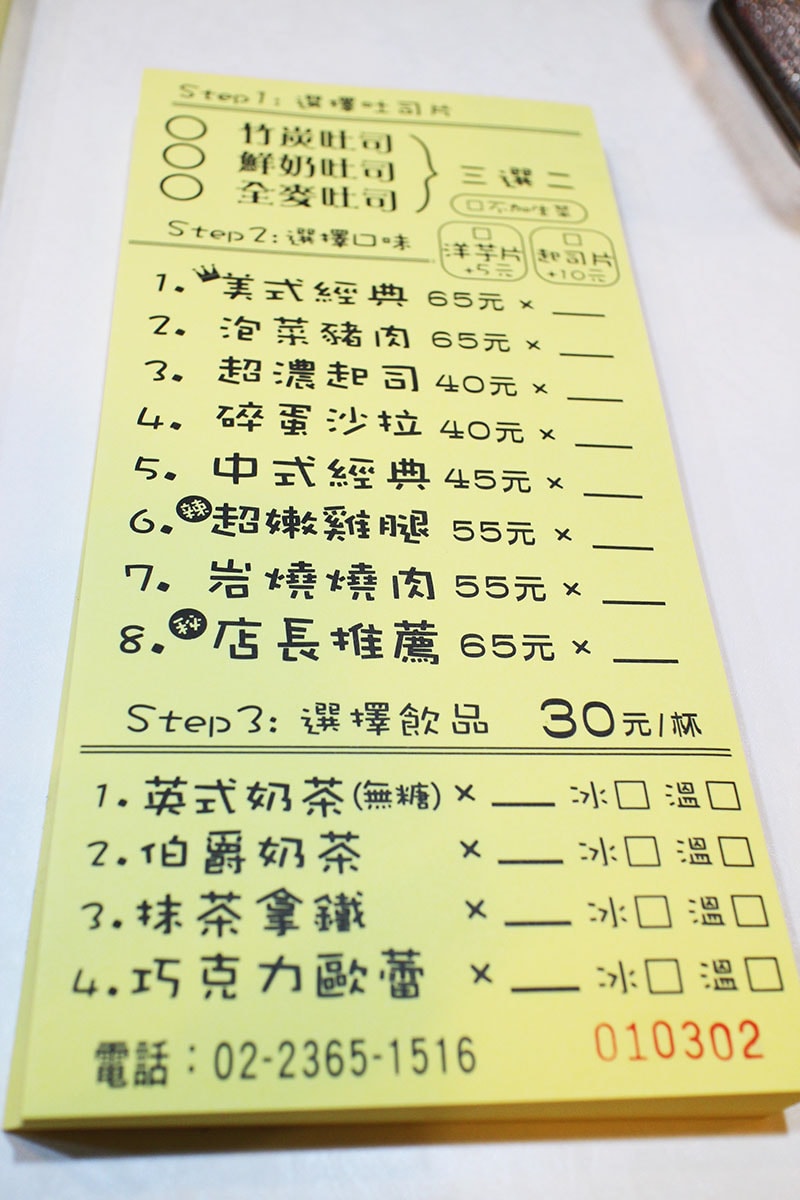 Step1: 選擇吐司片
○ 竹炭吐司
○ 鮮奶吐司
○ 全麥吐司
三選二
□不加生菜
Step2: 選擇口味
□ 洋芋片 +5元
□ 起司片 +10元
1. 美式經典 65元 × __
2. 泡菜豬肉 65元 × __
3. 超濃起司 40元 × __
4. 碎蛋沙拉 40元 × __
5. 中式經典 45元 × __
6. 辣 超嫩雞腿 55元 × __
7. 岩燒燒肉 55元 × __
8. 店長推薦 65元 × __
Step3: 選擇飲品 30元/杯
1. 英式奶茶(無糖) × __ 冰□ 溫□
2. 伯爵奶茶 × __ 冰□ 溫□
3. 抹茶拿鐵 × __ 冰□ 溫□
4. 巧克力歐蕾 × __ 冰□ 溫□
電話：02-2365-1516 010302